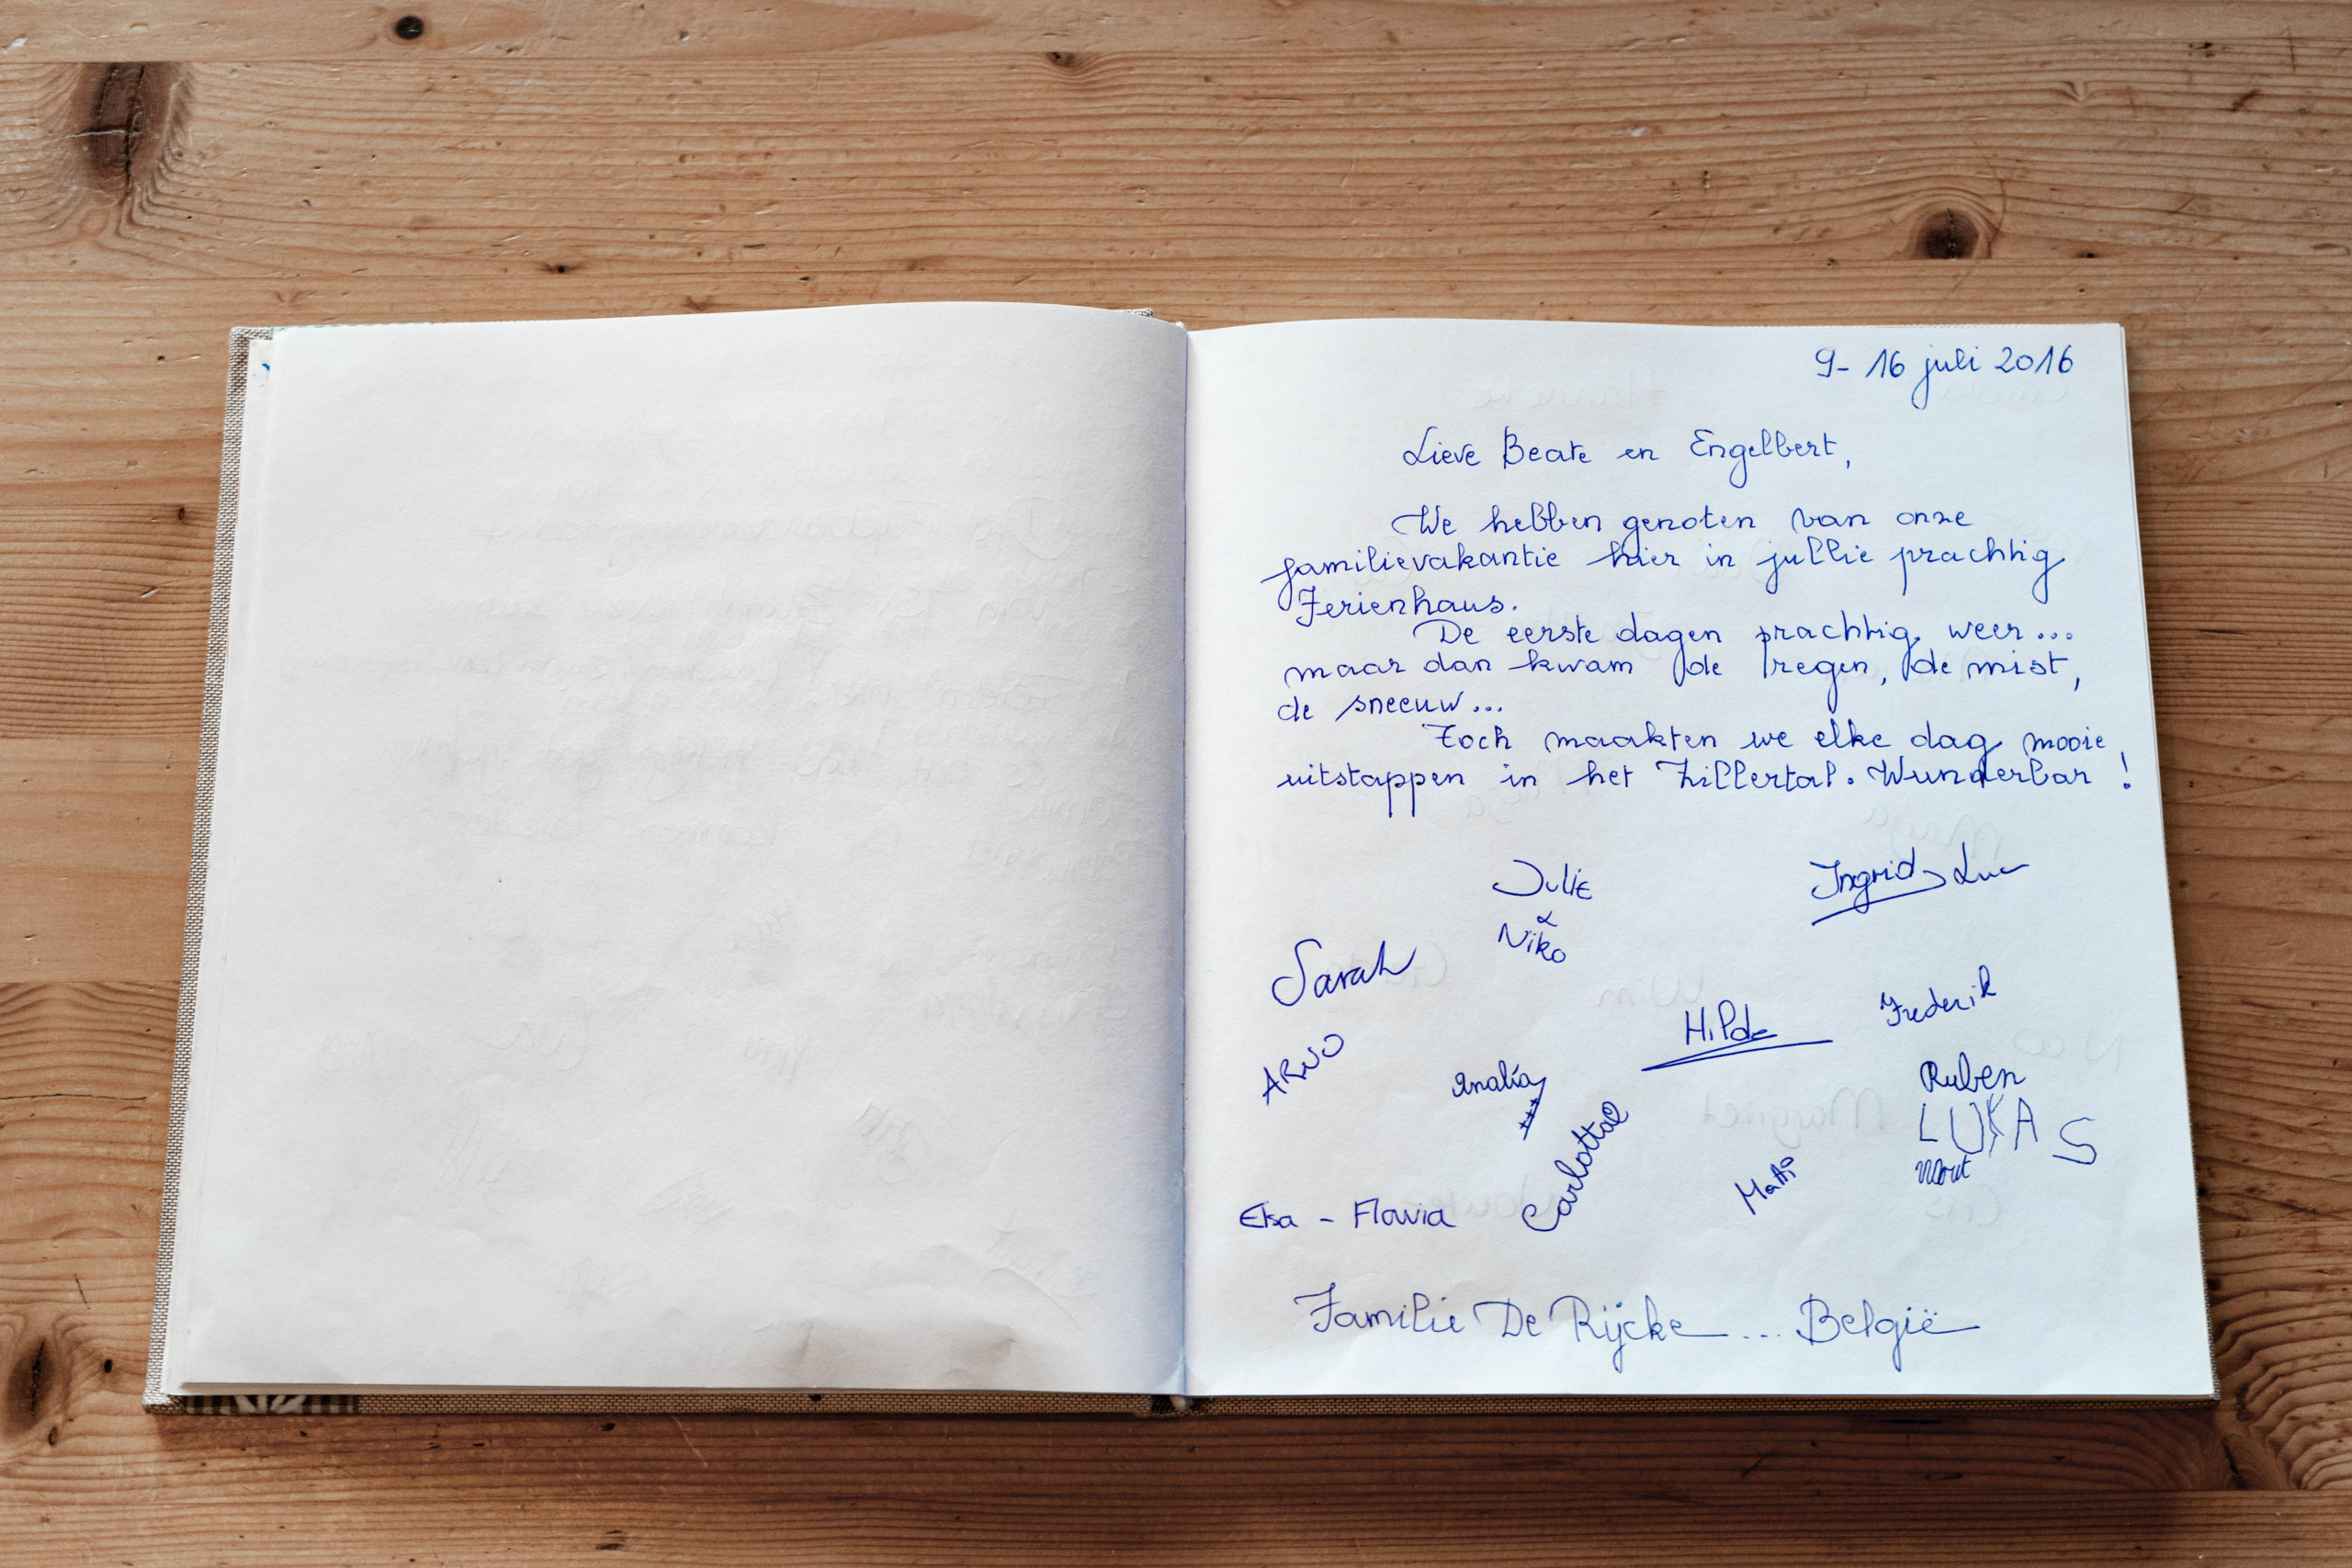 9- 16 juli 2016
Lieve Beate en Engelbert,
We hebben genoten van onze
familievakantie hier in jullie prachtig
Ferienhaus.
De eerste dagen prachtig weer...
maar dan kwam de regen, de mist,
de sneeuw...
Toch maakten we elke dag mooie
uitstappen in het Zillertal. Wunderbar !
Julie
&
Niko
Ingrid Luc
Sarah
Hilde
Frederik
ARNO
Analía
Carlotta
Ruben
LUKAS
Wout
Elsa - Flavia
Familie De Rijcke ... België